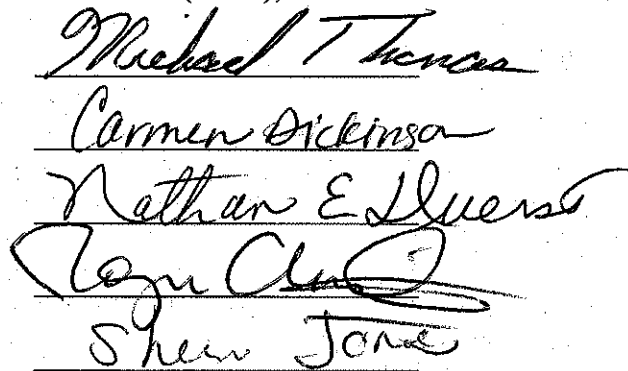 Michael Thomas
Carmen Dickinson
Nathan E Duerst
Roger
Sheri Jone